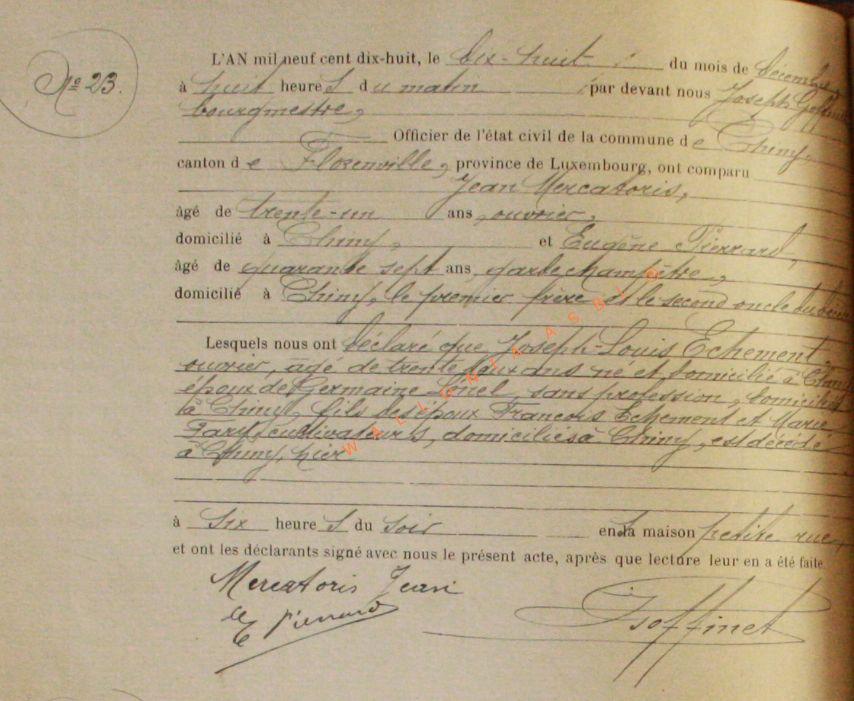 Nº 23.
L'AN mil neuf cent dix-huit, le dix-huit du mois de décembre,
à huit heures du matin par devant nous Joseph Goffinet
bourgmestre,
Officier de l'état civil de la commune de Chiny,
canton de Florenville, province de Luxembourg, ont comparu
Jean Mercatoris,
âgé de trente-un ans, ouvrier,
domicilié à Chiny, et Eugène Pierrard,
âgé de quarante sept ans, garde champêtre,
domicilié à Chiny, le premier frère et le second oncle du
Lesquels nous ont déclaré que Joseph-Louis Echement
ouvrier, âgé de trente deux ans né et domicilié à Chiny
époux de Germaine sans profession, domiciliée
à Chiny, fils des époux François Echement et Marie
cultivateurs, domiciliés à Chiny, est décédé
à Chiny, hier
à six heures du soir en la maison petite rue,
et ont les déclarants signé avec nous le présent acte, après que lecture leur en a été faite.
Mercatoris Jean
E Pierrard JGoffinet
WALLONIA ASBL ©